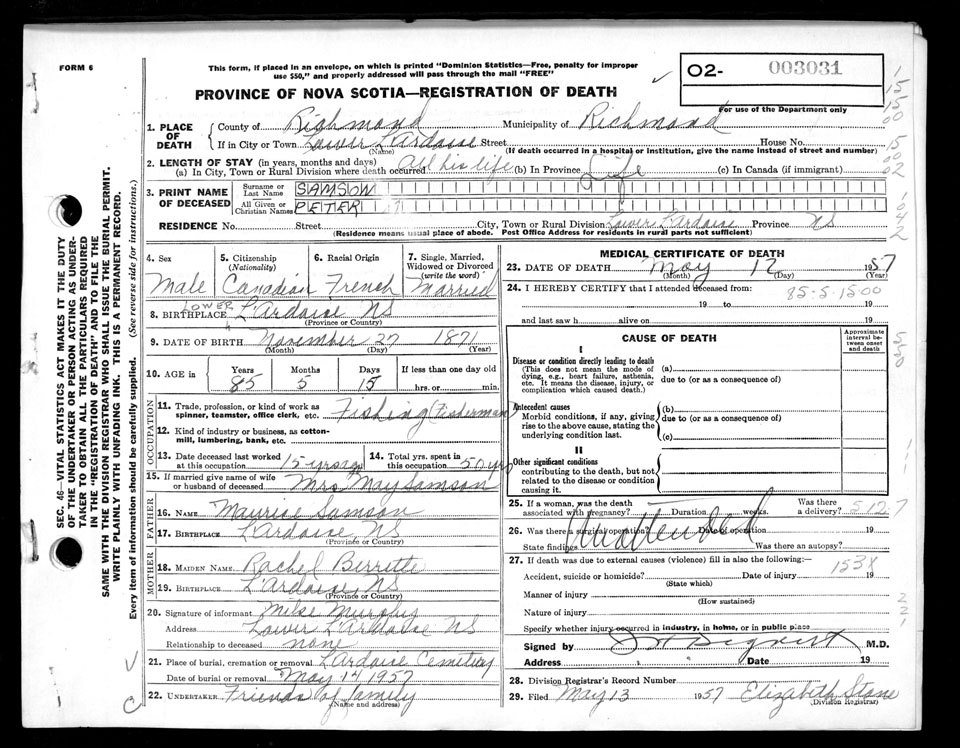 FORM 6
This form, if placed in an envelope, on which is printed "Dominion Statistics—Free, penalty for improper
use $50," and properly addressed will pass through the mail "FREE"
PROVINCE OF NOVA SCOTIA—REGISTRATION OF DEATH
O2- 003031
For use of the Department only
1. PLACE OF DEATH
County of Richmond Municipality of Richmond
If in City or Town Lower L'Ardoise Street House No.
(Name) (If death occurred in a hospital or institution, give the name instead of street and number)
2. LENGTH OF STAY (in years, months and days)
(a) In City, Town or Rural Division where death occurred All his life (b) In Province Life (c) In Canada (if immigrant)
3. PRINT NAME OF DECEASED
Surname or Last Name SAMSON
All Given or Christian Names PETER
RESIDENCE No. Street City, Town or Rural Division Lower L'Ardoise Province NS
(Residence means usual place of abode. Post Office Address for residents in rural parts not sufficient)
4. Sex 5. Citizenship (Nationality) 6. Racial Origin 7. Single, Married, Widowed or Divorced (write the word)
Male Canadian French Married
8. BIRTHPLACE LOWER L'Ardoise NS
(Province or Country)
9. DATE OF BIRTH November 27 1871
(Month) (Day) (Year)
10. AGE in Years Months Days If less than one day old
85 5 15 hrs. or min.
OCCUPATION
11. Trade, profession, or kind of work as spinner, teamster, office clerk, etc. Fishing (Fisherman)
12. Kind of industry or business, as cotton-mill, lumbering, bank, etc.
13. Date deceased last worked at this occupation 15 yrs ago 14. Total yrs. spent in this occupation 50 yrs
15. If married give name of wife or husband of deceased Mrs May Samson
FATHER
16. NAME Maurice Samson
17. BIRTHPLACE L'Ardoise NS
(Province or Country)
MOTHER
18. MAIDEN NAME Rachel Berrette
19. BIRTHPLACE L'Ardoise NS
(Province or Country)
20. Signature of informant Mike Murphy
Address Lower L'Ardoise NS
Relationship to deceased none
21. Place of burial, cremation or removal L'Ardoise Cemetery
Date of burial or removal May 14 1957
22. UNDERTAKER Friends of family
(Name and address)
MEDICAL CERTIFICATE OF DEATH
23. DATE OF DEATH May 12 1957
(Month) (Day) (Year)
24. I HEREBY CERTIFY that I attended deceased from: 85-5-15-00
19 to 19
and last saw h alive on 19
CAUSE OF DEATH
Approximate interval between onset and death
I
Disease or condition directly leading to death
(This does not mean the mode of dying, e.g., heart failure, asthenia, etc. It means the disease, injury, or complication which caused death.)
(a)
due to (or as a consequence of)
Antecedent causes
Morbid conditions, if any, giving rise to the above cause, stating the underlying condition last.
(b)
due to (or as a consequence of)
(c)
II
Other significant conditions
contributing to the death, but not related to the disease or condition causing it.
25. If a woman, was the death associated with pregnancy? Duration weeks. Was there a delivery?
26. Was there a surgical operation? Date of operation 19
State findings Was there an autopsy?
27. If death was due to external causes (violence) fill in also the following:—
153X
Accident, suicide or homicide? Date of injury 19
(State which)
Manner of injury
(How sustained)
Nature of injury
Specify whether injury occurred in industry, in home, or in public place
Signed by M.D.
Address Date 19
28. Division Registrar's Record Number
29. Filed May 13 1957 Elizabeth Stone
(Division Registrar)
SEC. 46—VITAL STATISTICS ACT MAKES IT THE DUTY
OF THE UNDERTAKER OR PERSON ACTING AS UNDER-
TAKER TO OBTAIN ALL THE PARTICULARS REQUIRED
IN THE "REGISTRATION OF DEATH" AND TO FILE THE
SAME WITH THE DIVISION REGISTRAR WHO SHALL ISSUE THE BURIAL PERMIT.
WRITE PLAINLY WITH UNFADING INK. THIS IS A PERMANENT RECORD.
Every item of information should be carefully supplied. (See reverse side for instructions.)